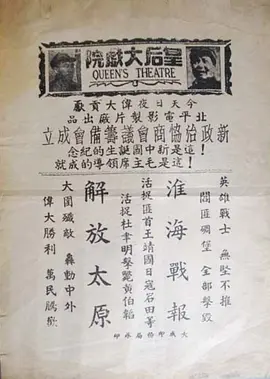 皇后大戲院
QUEEN'S THEATRE
今天日夜偉大貢獻
北平電影製片廠出品
新政治協商會議籌備會成立
這是新中國誕生的紀念！
這是毛主席領導的成就！
英雄戰士 無堅不推
閻匪碉堡 全部擊毀
淮海戰報
活捉匪首王靖國日寇岩田等
活捉杜聿明擊斃黃伯韜
解放太原
大圍殲敵 轟動中外
偉大勝利 萬民騰歡
大成印務局承印